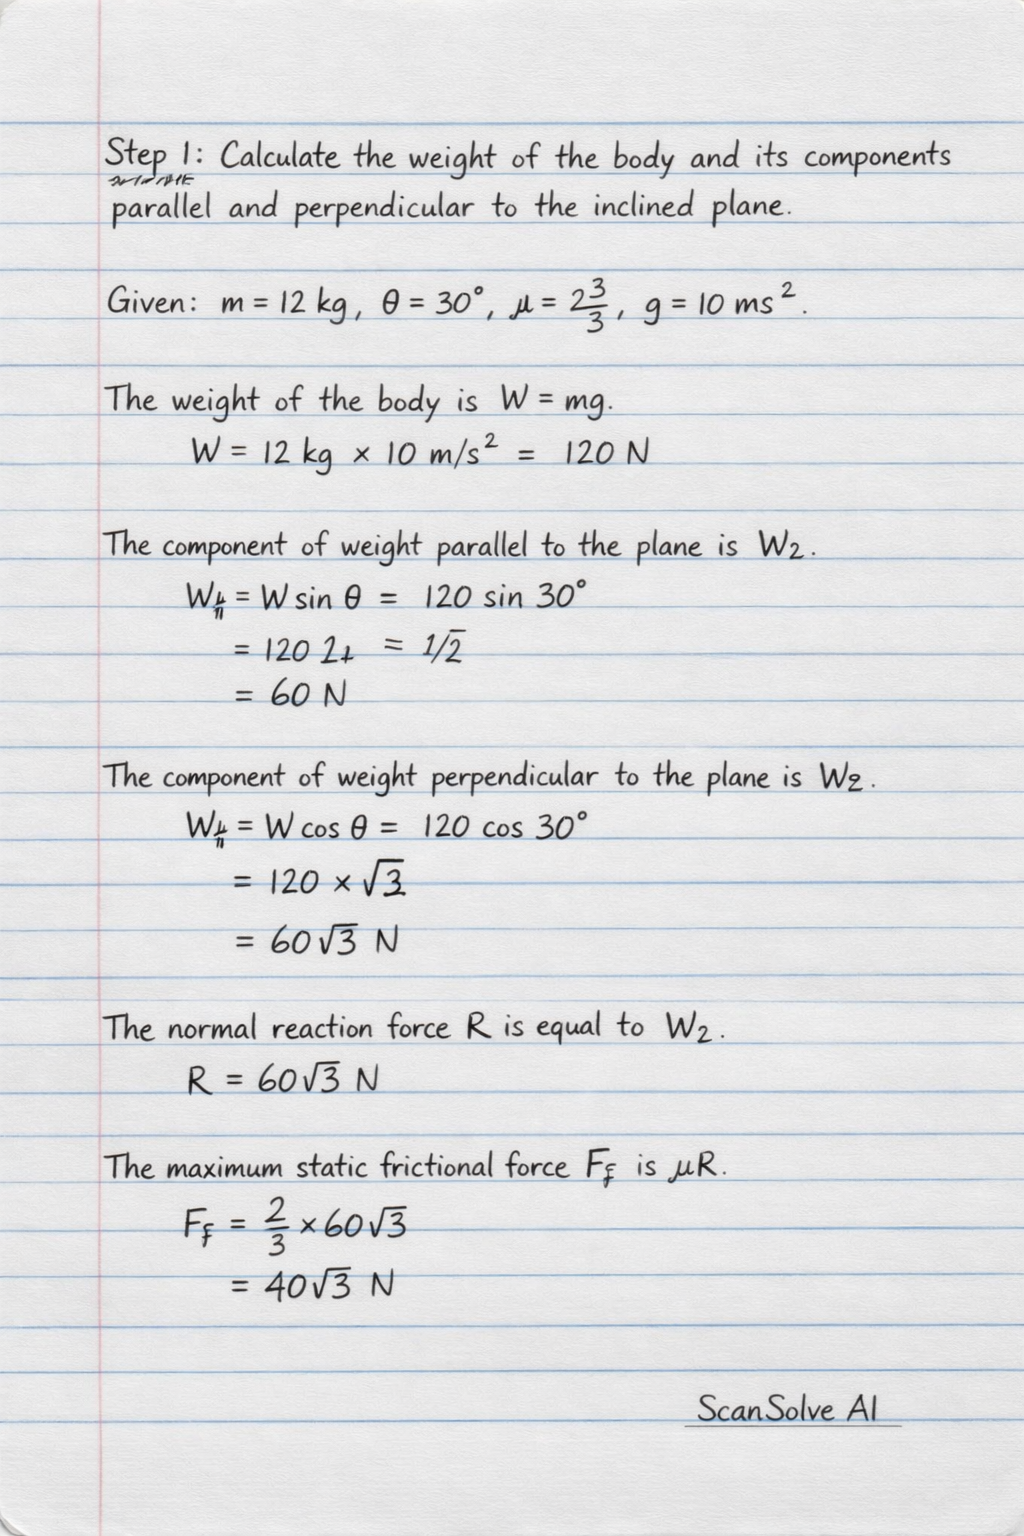 Step 1: Calculate the weight of the body and its components
parallel and perpendicular to the inclined plane.
Given: m = 12 kg, θ = 30°, μ = 2 3/3, g = 10 ms².
The weight of the body is W = mg.
W = 12 kg × 10 m/s² = 120 N
The component of weight parallel to the plane is W₂.
W = W sin θ = 120 sin 30°
= 120 = 1/2
= 60 N
The component of weight perpendicular to the plane is W₂.
W = W cos θ = 120 cos 30°
= 120 × √3
= 60√3 N
The normal reaction force R is equal to W₂.
R = 60√3 N
The maximum static frictional force F_f is μR.
F_f = 2/3 × 60√3
= 40√3 N
ScanSolve AI